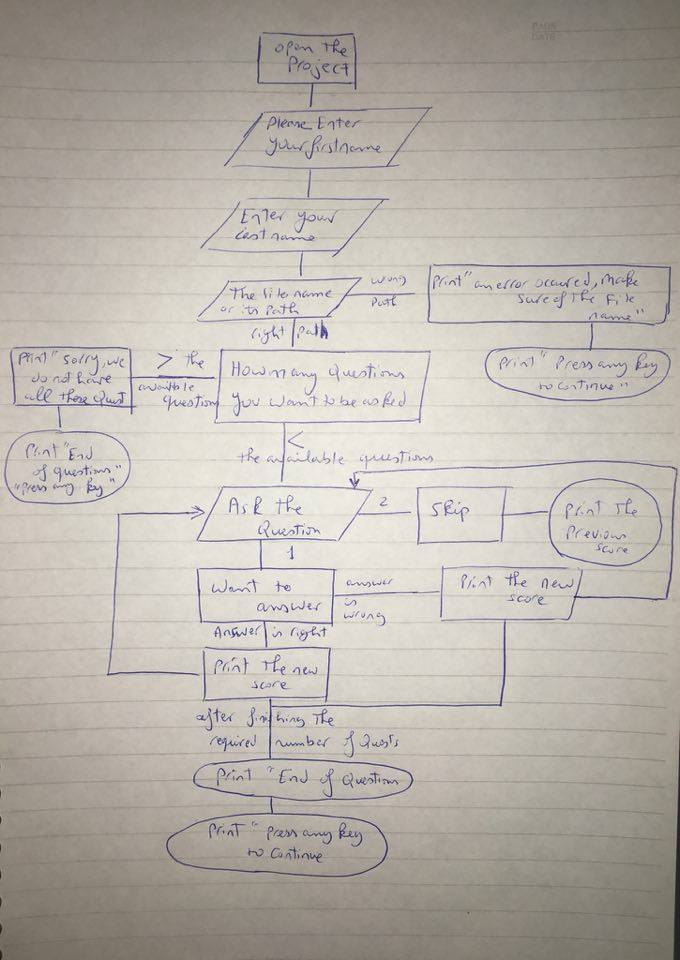 PAGE
DATE
open the
Project
Please Enter
your firstname
Enter your
last name
The file name
or its path
wrong
path
Print "an error occured, make
sure of the File
name"
Print "Press any key
to continue"
right path
How many Questions
you want to be asked
> the
available
questions
Print "Sorry, we
do not have
all those Quest
Print "End
of questions"
"Press any key"
<
the available questions
Ask the
Question
2
Skip
Print The
Previous
score
1
Want to
answer
answer
is
wrong
Print the new
score
Answer is right
Print the new
score
after finishing the
required number of Quests
Print "End of Question
Print "press any key
to Continue